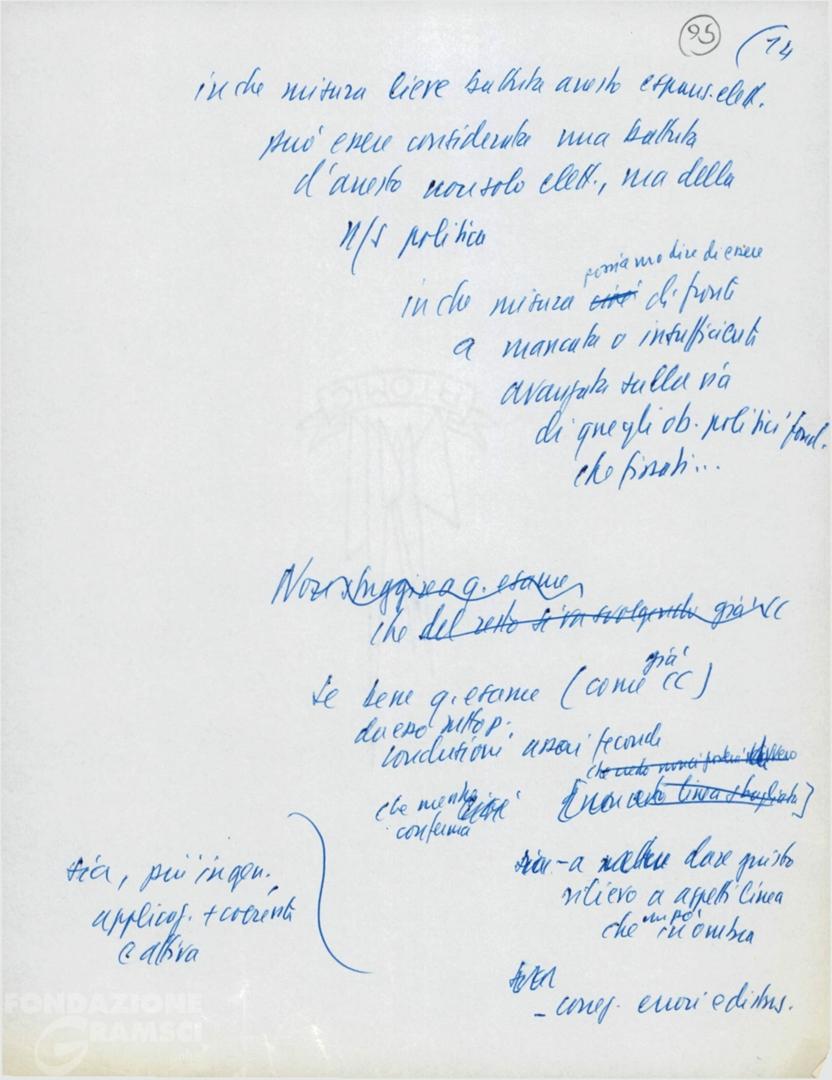 95 (14
in che misura lieve battuta arresto espans. elett.
può essere considerata una battuta
d'arresto non solo elett., ma della
n/s politica
possiamo dire di essere
in che misura cioè di fronte
a mancata o insufficiente
avanzata sulla via
di quegli ob. politici fond.
che fissati...
Non sfuggire a q. esame,
che del resto si va svolgendo già CC
già
se bene q. esame (come CC)
conclusioni assai feconde
[non certo linea sbagliata]
che mentre
conferma
sia, più in gen.,
applicaz. + coerente
e attiva
sia - a dare giusto
rilievo a aspetti linea
un po'
che in ombra
- correg. errori e distors.
FONDAZIONE
GRAMSCI